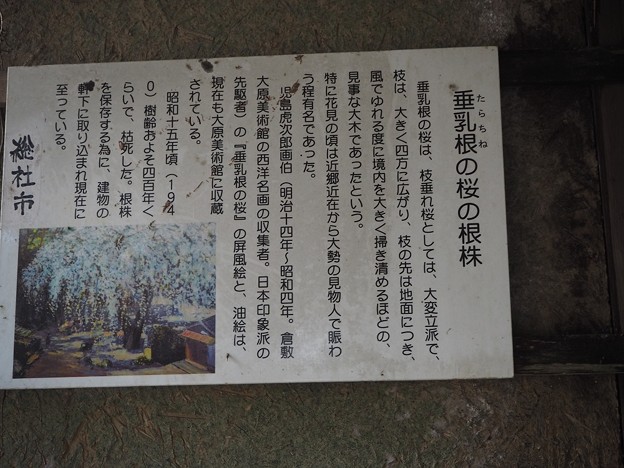 垂乳根の桜の根株
たらちね
垂乳根の桜は、枝垂れ桜としては、大変立派で、
枝は、大きく四方に広がり、枝の先は地面につき、
風でゆれる度に境内を大きく掃き清めるほどの、
見事な大木であったという。
特に花見の頃は近郷近在から大勢の見物人で賑わ
う程有名であった。
児島虎次郎画伯(明治十四年〜昭和四年。倉敷
大原美術館の西洋名画の収集者。日本印象派の
先駆者)の『垂乳根の桜』の屏風絵と、油絵は、
現在も大原美術館に収蔵
されている。
昭和十五年頃(194
0)樹齢およそ四百年く
らいで、枯死した。根株
を保存する為に、建物の
軒下に取り込まれ現在に
至っている。
総社市